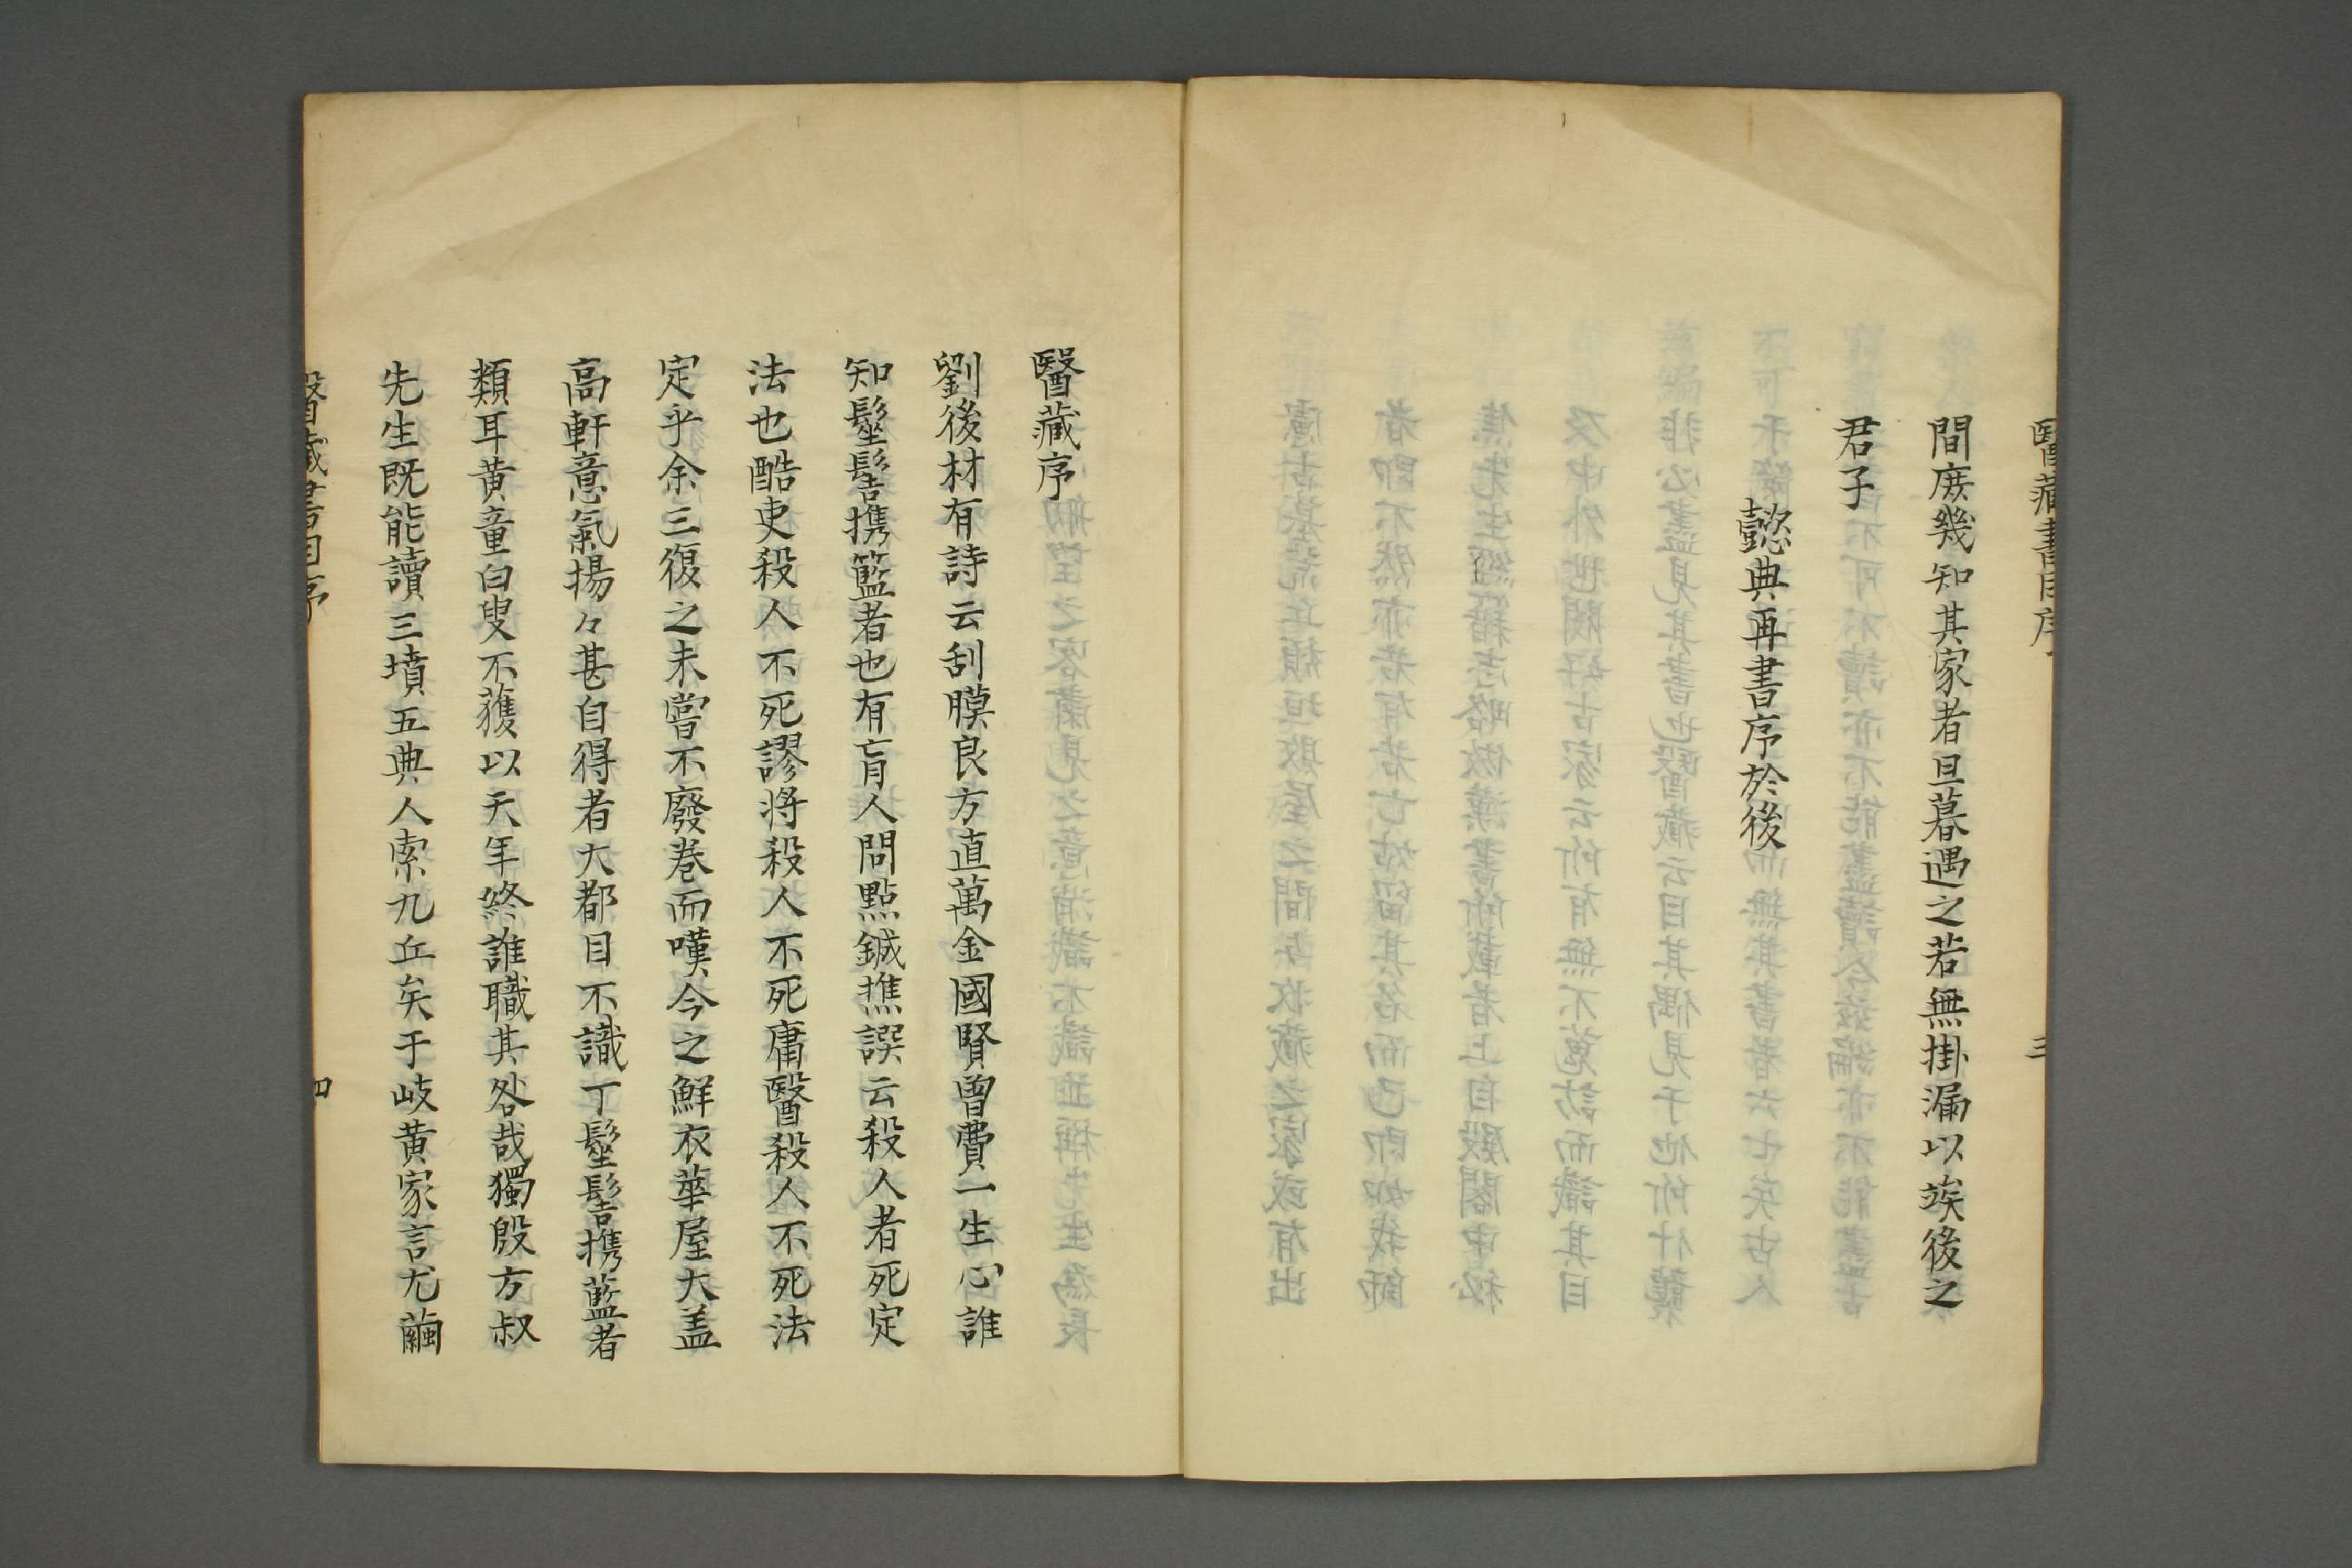 醫藏書目序 三
間庻幾知其家者旦暮遇之若無掛漏以竢後之
君子
懿典再書序於後
醫藏序
劉後材有詩云刮膜良方直萬金國賢曾費一生心誰
知髽髻携籃者也有盲人問點鍼撨譔云殺人者死定
法也酷吏殺人不死謬將殺人不死庸醫殺人不死法
定乎余三復之未嘗不廢卷而嘆今之鮮衣華屋大盖
高軒意氣揚々甚自得者大都目不識丁髽髻携藍者
類耳黄童白叟不獲以天年終誰職其咎哉獨殷方叔
先生既能讀三墳五典人索九丘矣于岐黄家言尤繭
醫藏書目序 四